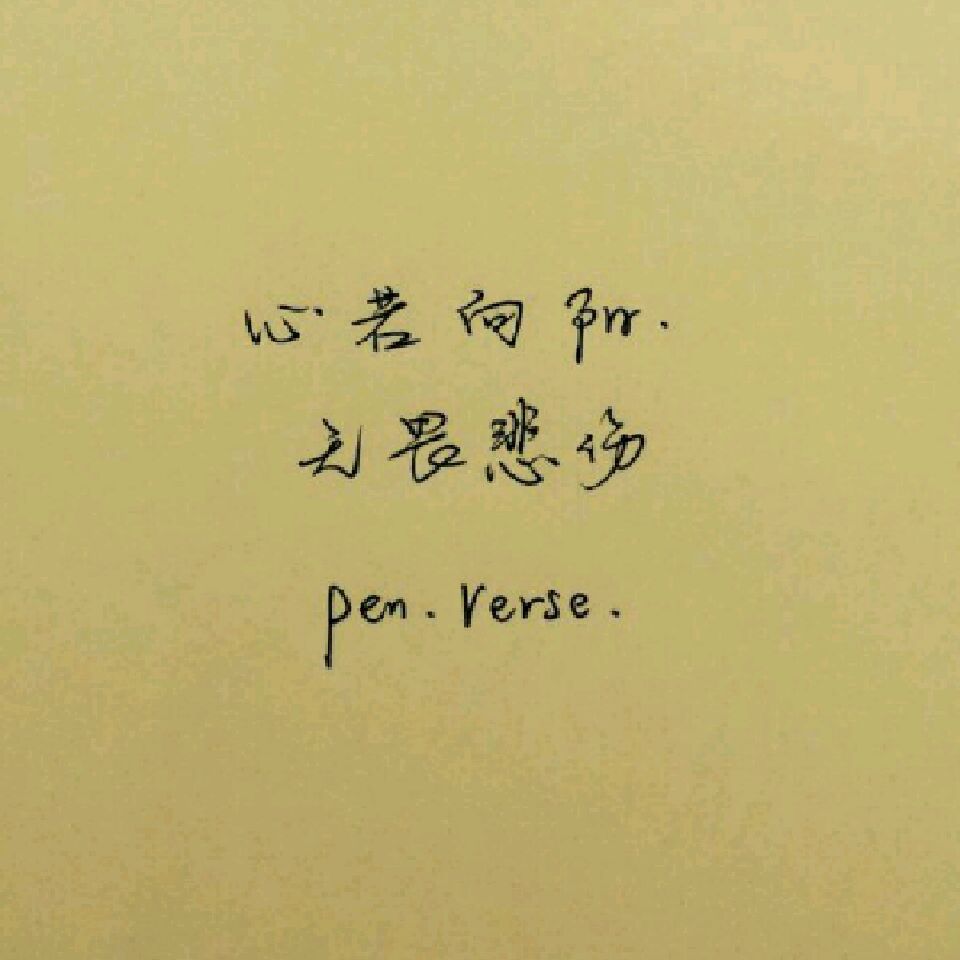 心若向阳.
无畏悲伤
pen. Verse.